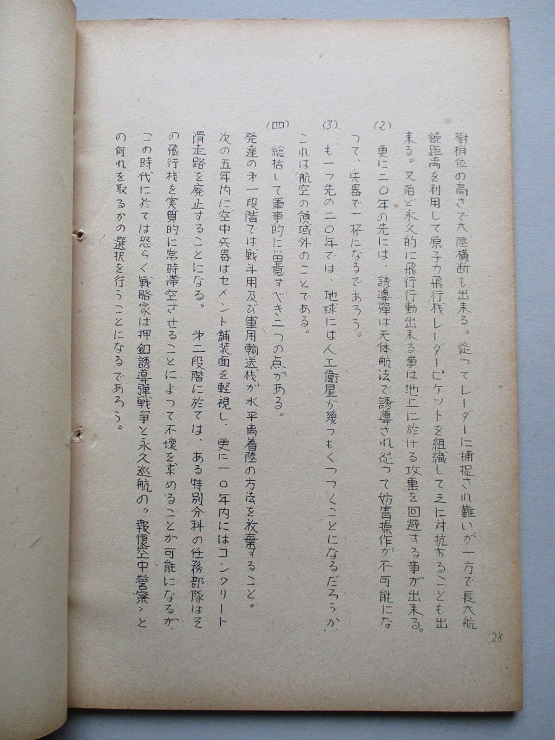 樹梢位の高さで大陸横断も出来る。従つてレーダーに捕捉され難いが一方で長大航
続距離を利用して原子力飛行機レーダーピケットを組織して之に対抗することも出
来る。又殆ど永久的に飛行行動出来る事は地上に於ける攻撃を回避する事が出来る。
(2) 更に二〇年の先には、誘導弾は天体航法で誘導され従つて妨害操作が不可能にな
つて、兵器で一杯になるであろう。
(3) も一つ先の二〇年では、地球には人工衛星が幾つもくつつくことになるだろうが、
これは航空の領域外のことである。
(四) 総括して軍事的に留意すべき二つの点がある。
発達の才一段階では戦斗用及び軍用輸送機が水平離着陸の方法を放棄すること。
次の五年内に空中兵器はセメント舗装面を軽視し、更に一〇年内にはコンクリート
滑走路を廃止することになる。 才二段階に於ては、ある特別分科の任務部隊はそ
の飛行機を実質的に常時滞空させることによつて不壊を求めることが可能になるが、
この時代に於ては恐らく戦略家は押釦誘導弾戦争と永久巡航の〃報復空中警察〃と
の何れを取るかの選択を行うことになるであろう。
28